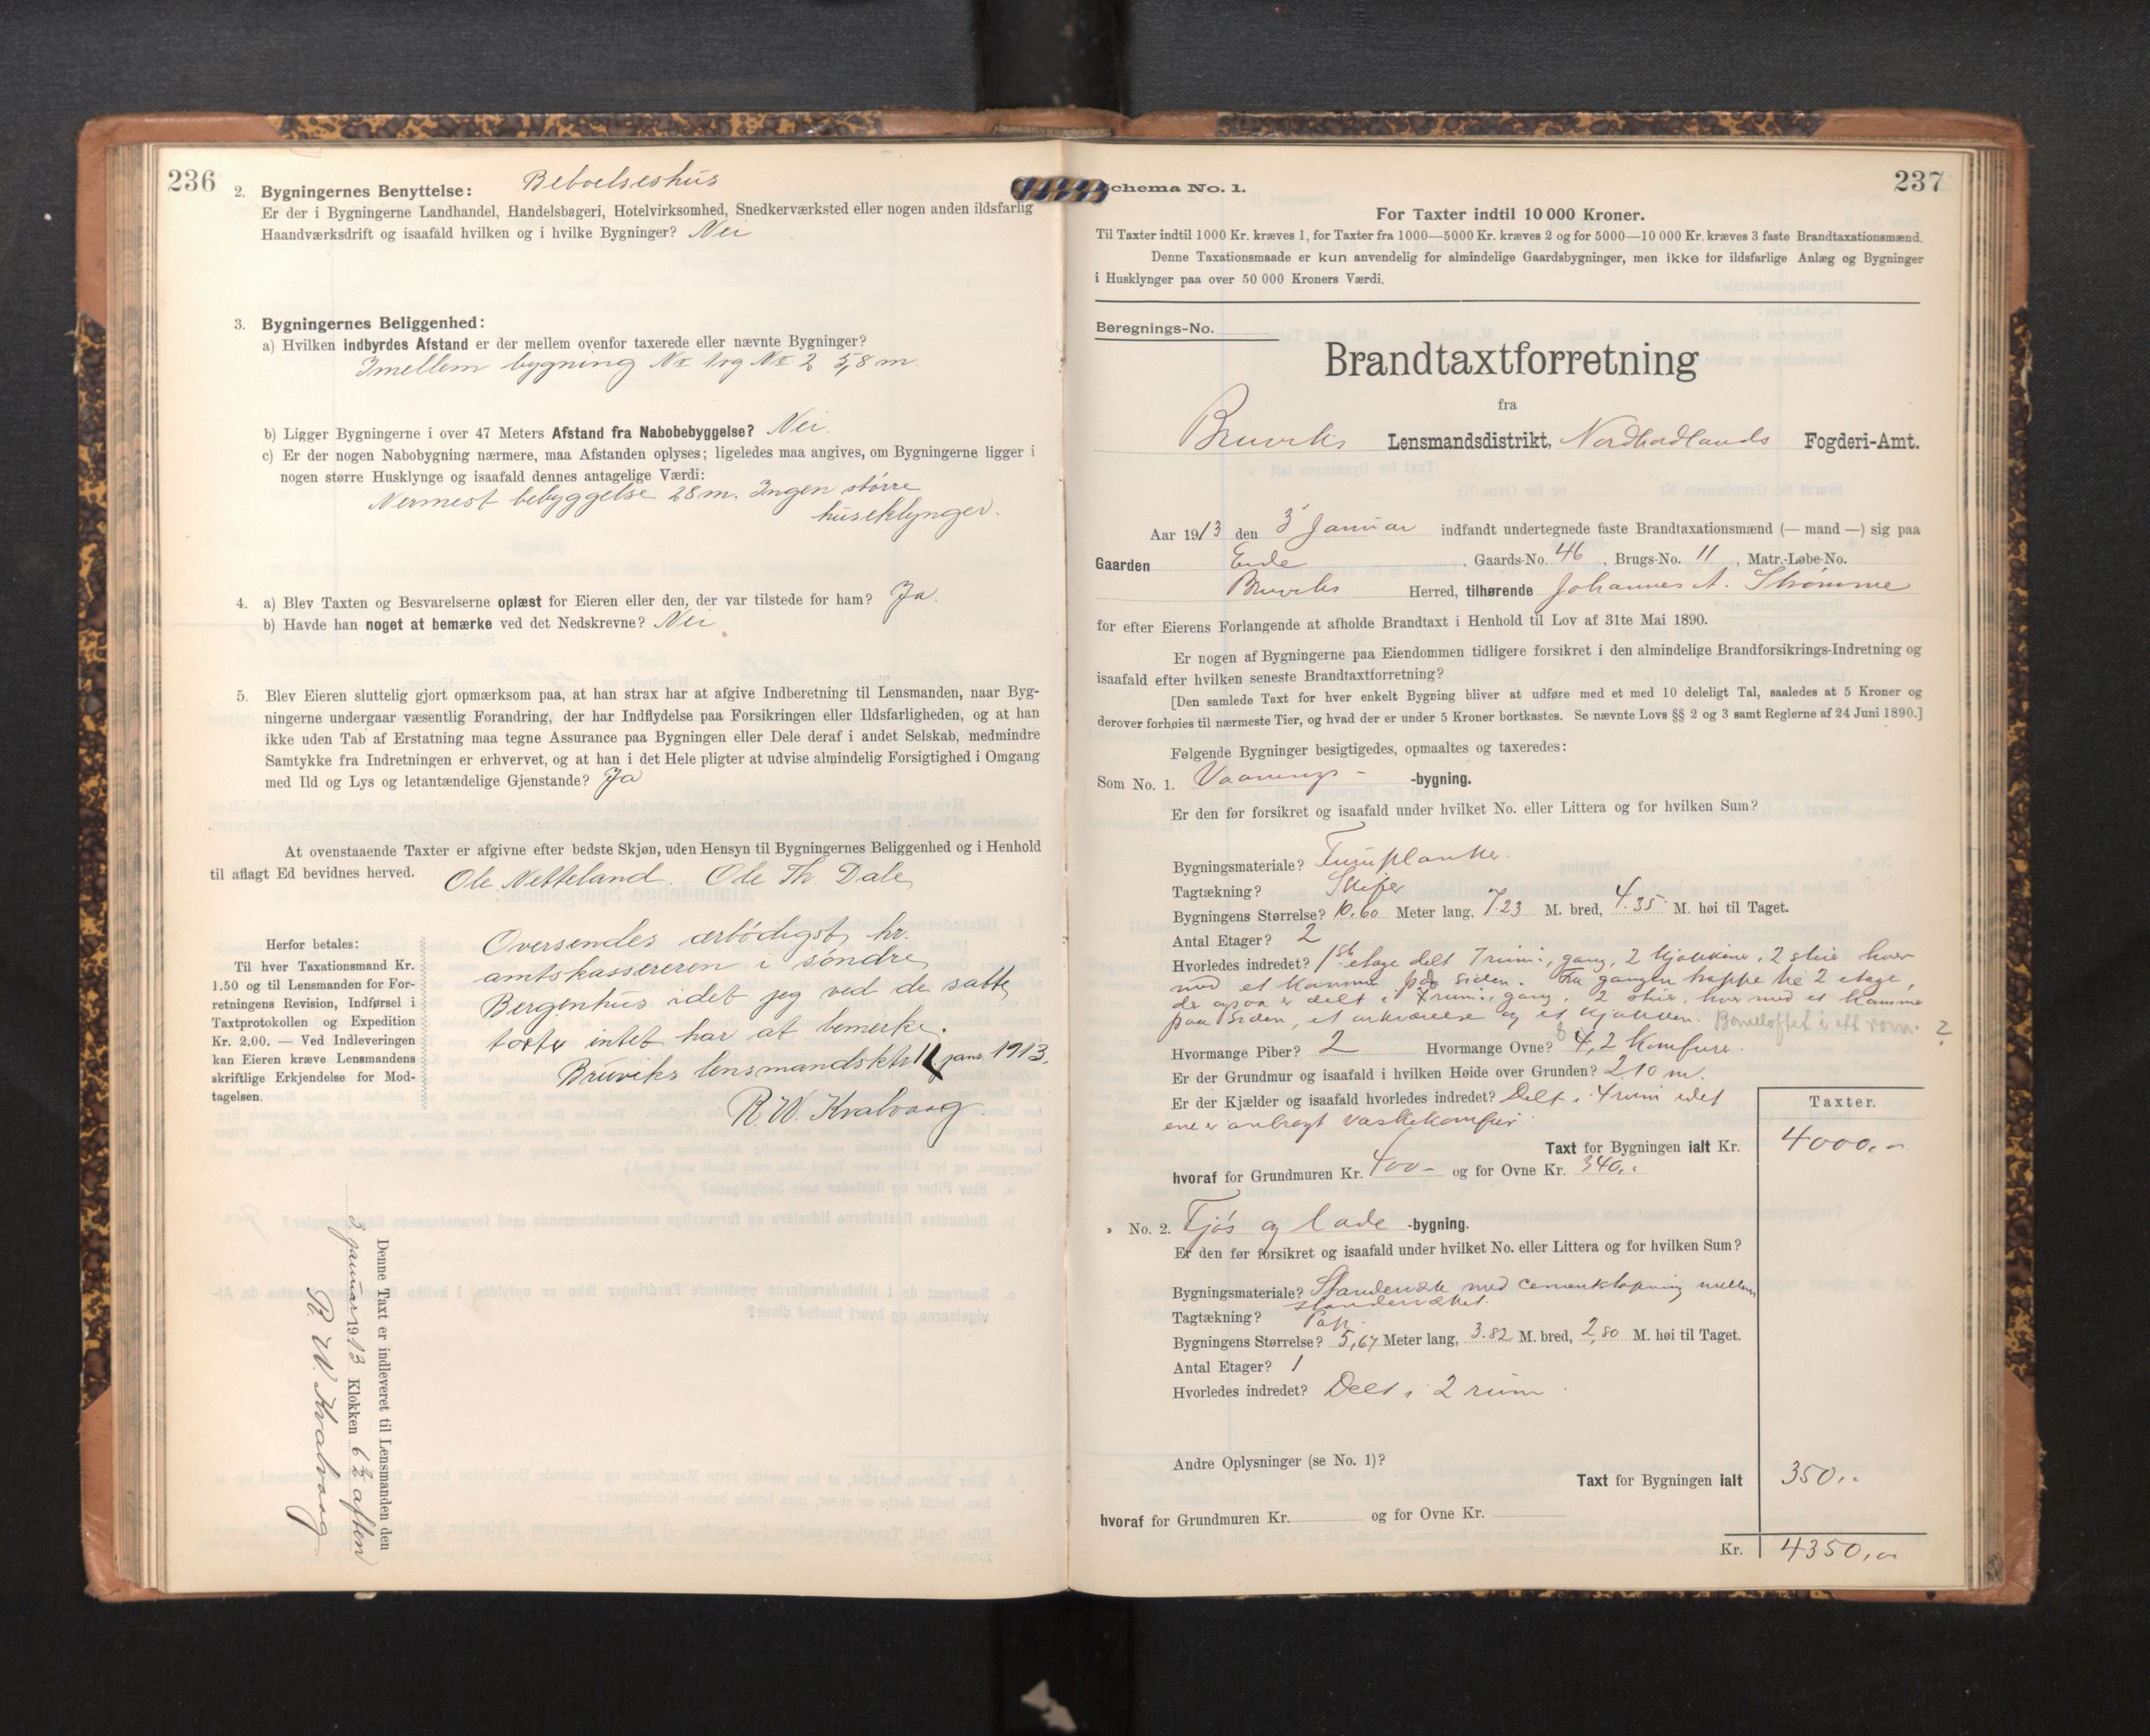 236
2. Bygningernes Benyttelse: Beboelseshus
Er der i Bygningerne Landhandel, Handelsbageri, Hotelvirksomhed, Snedkerværksted eller nogen anden ildsfarlig
Haandværksdrift og isaafald hvilken og i hvilke Bygninger? Nei
3. Bygningernes Beliggenhed:
a) Hvilken indbyrdes Afstand er der mellem ovenfor taxerede eller nævnte Bygninger?
Imellem bygning No 1 og No 2 5,8 m.
b) Ligger Bygningerne i over 47 Meters Afstand fra Nabobebyggelse? Nei.
c) Er der nogen Nabobygning nærmere, maa Afstanden oplyses; ligeledes maa angives, om Bygningerne ligger i
nogen større Husklynge og isaafald dennes antagelige Værdi:
Nermest bebyggelse 28 m. Ingen større
huseklynger.
4. a) Blev Taxten og Besvarelserne oplæst for Eieren eller den, der var tilstede for ham? Ja.
b) Havde han noget at bemærke ved det Nedskrevne? Nei
5. Blev Eieren sluttelig gjort opmærksom paa, at han strax har at afgive Indberetning til Lensmanden, naar Byg-
ningerne undergaar væsentlig Forandring, der har Indflydelse paa Forsikringen eller Ildsfarligheden, og at han
ikke uden Tab af Erstatning maa tegne Assurance paa Bygningen eller Dele deraf i andet Selskab, medmindre
Samtykke fra Indretningen er erhvervet, og at han i det Hele pligter at udvise almindelig Forsigtighed i Omgang
med Ild og Lys og letantændelige Gjenstande? Ja
At ovenstaaende Taxter er afgivne efter bedste Skjøn, uden Hensyn til Bygningernes Beliggenhed og i Henhold
til aflagt Ed bevidnes herved. Ole Netteland. Ole Th. Dale
Herfor betales:
Til hver Taxationsmand Kr.
1.50 og til Lensmanden for For-
retningens Revision, Indførsel i
Taxtprotokollen og Expedition
Kr. 2.00. — Ved Indleveringen
kan Eieren kræve Lensmandens
skriftlige Erkjendelse for Mod-
tagelsen.
Oversendes ærbødigst hr.
amtskassereren i søndre
Bergenhus idet jeg ved de satte
taxter intet har at bemerke.
Bruviks lensmandsktr 11 janr. 1913.
R. W. Kvalvaag.
Denne Taxt er indleveret til Lensmanden den
3 januar 1913 Klokken 6½ aften
R. W. Kvalvaag
237
Schema No. 1.
For Taxter indtil 10 000 Kroner.
Til Taxter indtil 1000 Kr. kræves 1, for Taxter fra 1000—5000 Kr. kræves 2 og for 5000—10 000 Kr. kræves 3 faste Brandtaxationsmænd.
Denne Taxationsmaade er kun anvendelig for almindelige Gaardsbygninger, men ikke for ildsfarlige Anlæg og Bygninger
i Husklynger paa over 50 000 Kroners Værdi.
Beregnings-No.
Brandtaxtforretning
fra
Bruviks Lensmandsdistrikt, Nordhordlands Fogderi-Amt.
Aar 1913 den 3 Januar indfandt undertegnede faste Brandtaxationsmænd (— mand —) sig paa
Gaarden , Gaards-No. 46 , Brugs-No. 11 , Matr.-Løbe-No.
Bruviks Herred, tilhørende Johannes A. Strømme
for efter Eierens Forlangende at afholde Brandtaxt i Henhold til Lov af 31te Mai 1890.
Er nogen af Bygningerne paa Eiendommen tidligere forsikret i den almindelige Brandforsikrings-Indretning og
isaafald efter hvilken seneste Brandtaxtforretning?
[Den samlede Taxt for hver enkelt Bygning bliver at udføre med et med 10 deleligt Tal, saaledes at 5 Kroner og
derover forhøies til nærmeste Tier, og hvad der er under 5 Kroner bortkastes. Se nævnte Lovs §§ 2 og 3 samt Reglerne af 24 Juni 1890.]
Følgende Bygninger besigtigedes, opmaaltes og taxeredes:
Som No. 1. Vaanings- -bygning.
Er den før forsikret og isaafald under hvilket No. eller Littera og for hvilken Sum?
Bygningsmateriale?
Tagtækning? Skifer
Bygningens Størrelse? 10,60 Meter lang, 7.23 M. bred, 4.35 M. høi til Taget.
Antal Etager? 2
Hvorledes indredet? 1ste etage delt 7 rum:, gang, 2 kjøkkener, 2 stuer hver
med et kammer paa siden. Fra gangen trappe til 2 etage,
der ogsaa er delt i 7 rum:, gang, 2 stuer, hver med et kammer
paa siden, et arkværelse og et kjøkken.
Hvormange Piber? 2 Hvormange Ovne? 4, 2 Komfurer
Er der Grundmur og isaafald i hvilken Høide over Grunden? 2,10 m.
Er der Kjælder og isaafald hvorledes indredet? Delt i 4 rum idet
ene er anbragt vaskekomfur
Taxter.
Taxt for Bygningen ialt Kr. 4000,-
hvoraf for Grundmuren Kr. 400- og for Ovne Kr. 340,-
" No. 2. Fjøs og lade -bygning.
Er den før forsikret og isaafald under hvilket No. eller Littera og for hvilken Sum?
Bygningsmateriale? Standerværk med mellem
standerværket.
Tagtækning? Pap.
Bygningens Størrelse? 5,67 Meter lang, 3.82 M. bred, 2,80 M. høi til Taget.
Antal Etager? 1
Hvorledes indredet? Delt i 2 rum
Andre Oplysninger (se No. 1)?
Taxt for Bygningen ialt 350,-
hvoraf for Grundmuren Kr. og for Ovne Kr.
Kr. 4350,-